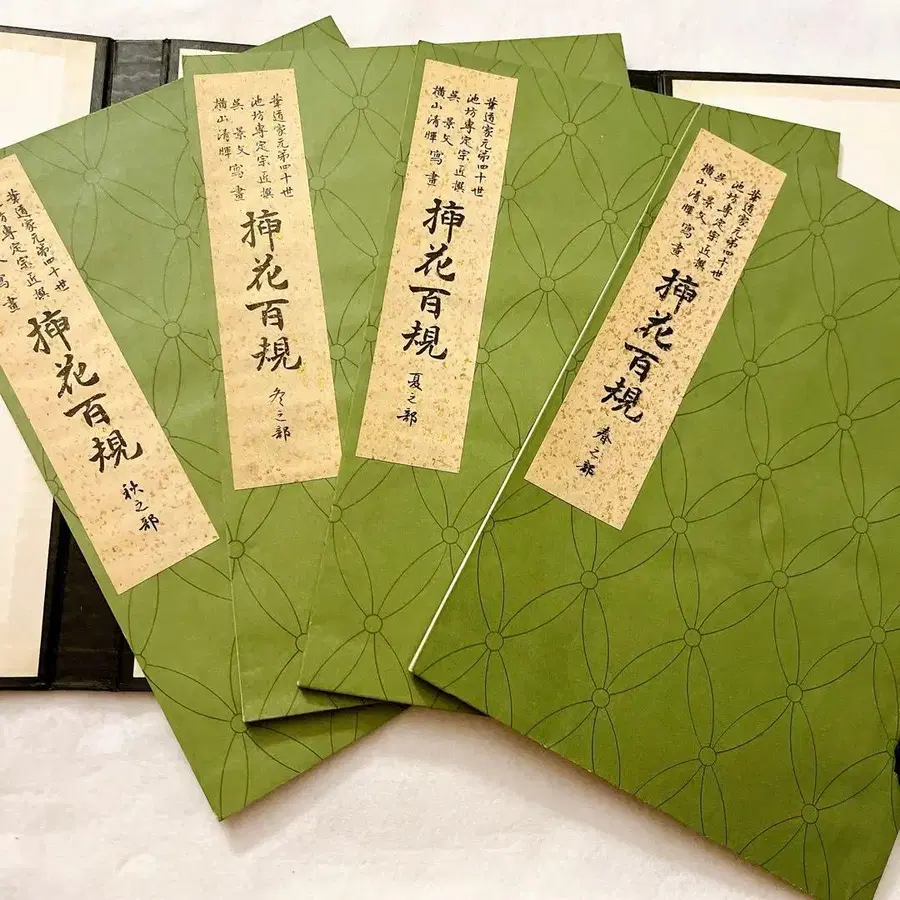 華道家元第四十世
池坊專定宗匠撰
吳景文
橫山清暉寫畫
挿花百規
春之部
華道家元第四十世
池坊專定宗匠撰
吳景文
橫山清暉寫畫
挿花百規
夏之部
華道家元第四十世
池坊專定宗匠撰
吳景文
橫山清暉寫畫
挿花百規
冬之部
華道家元第四十世
坊專定宗匠撰
寫畫
挿花百規
秋之部